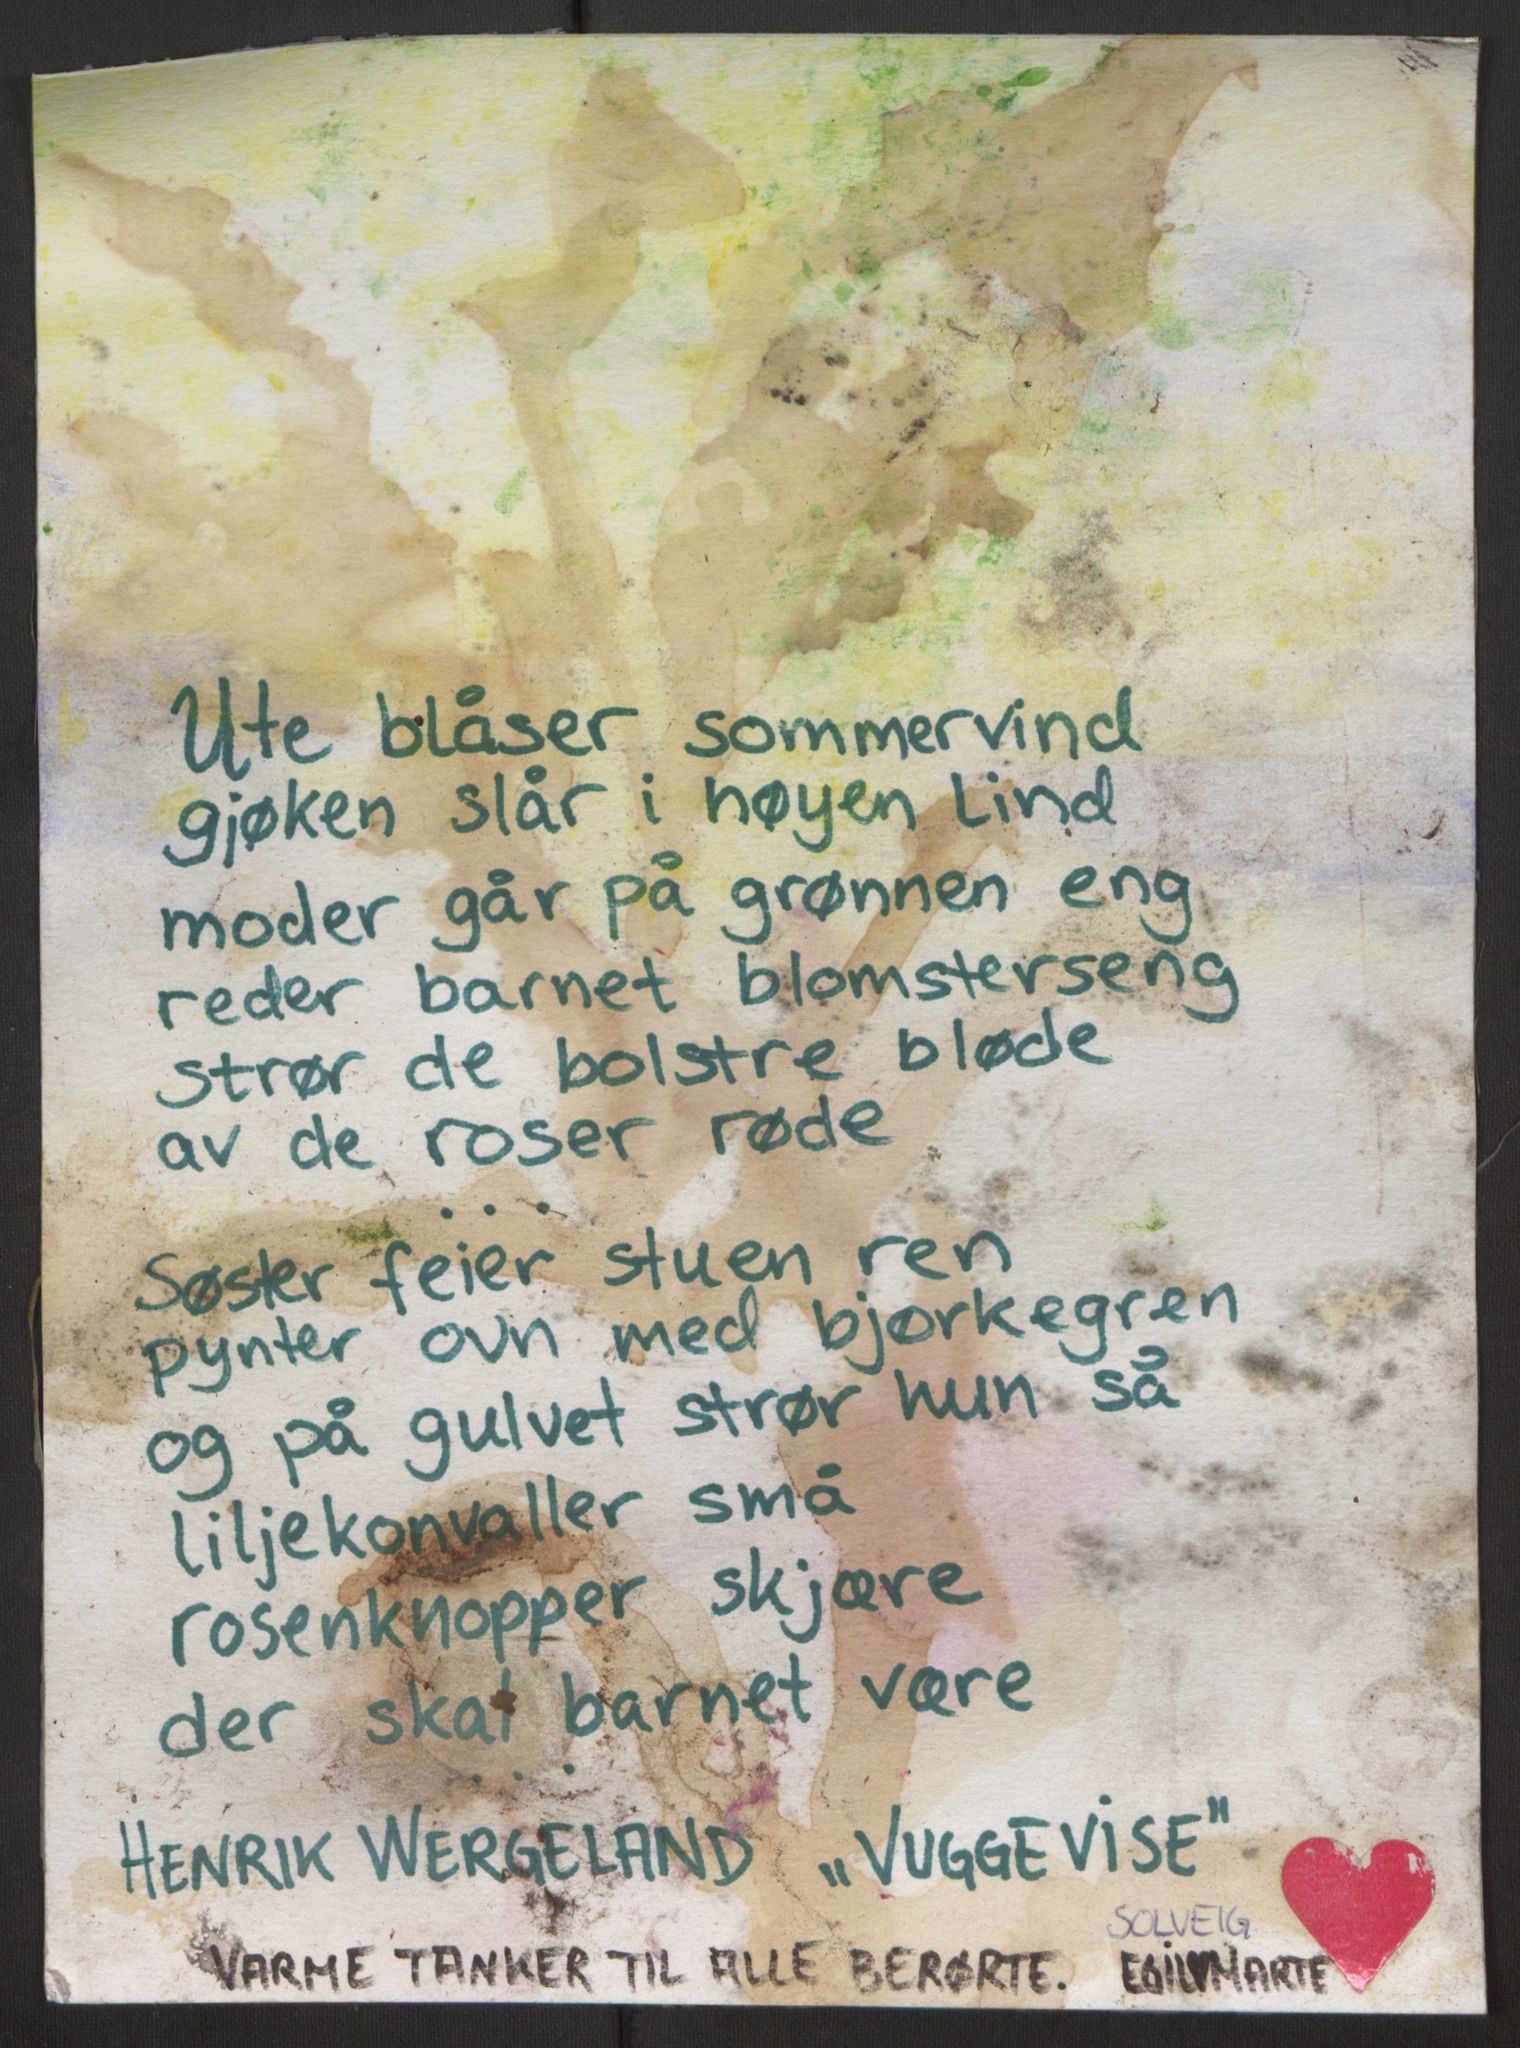 Ute blåser sommervind
gjøken slår i høyen lind
moder går på grønnen eng
reder barnet blomsterseng
strør de bolstre bløde
av de roser røde
...
Søster feier stuen ren
pynter ovn med bjørkegren
og på gulvet strør hun så
liljekonvaller små
rosenknopper skjære
der skal barnet være
...
HENRIK WERGELAND „VUGGEVISE"
SOLVEIG
VARME TANKER TIL ALLE BERØRTE. EGIL♥MARTE